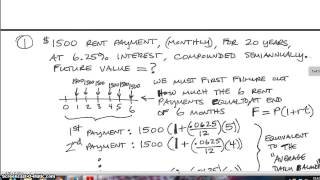 ① $1500 RENT PAYMENT, (MONTHLY), FOR 20 YEARS,
AT 6.25% INTEREST, COMPOUNDED SEMIANNUALLY.
FUTURE VALUE = ?
1500 1500 1500 1500 1500 1500
0 1 2 3 4 5 6
WE MUST FIRST FIGURE OUT
HOW MUCH THE 6 RENT
PAYMENTS EQUAL TO AT END
OF 6 MONTHS F = P(1+rt)
1ST PAYMENT: 1500 (1 + .0625/12 (5))
2nd PAYMENT: 1500 (1 + .0625/12 (4))
EQUIVALENT
TO THE
"AVERAGE
DAILY BALANCE